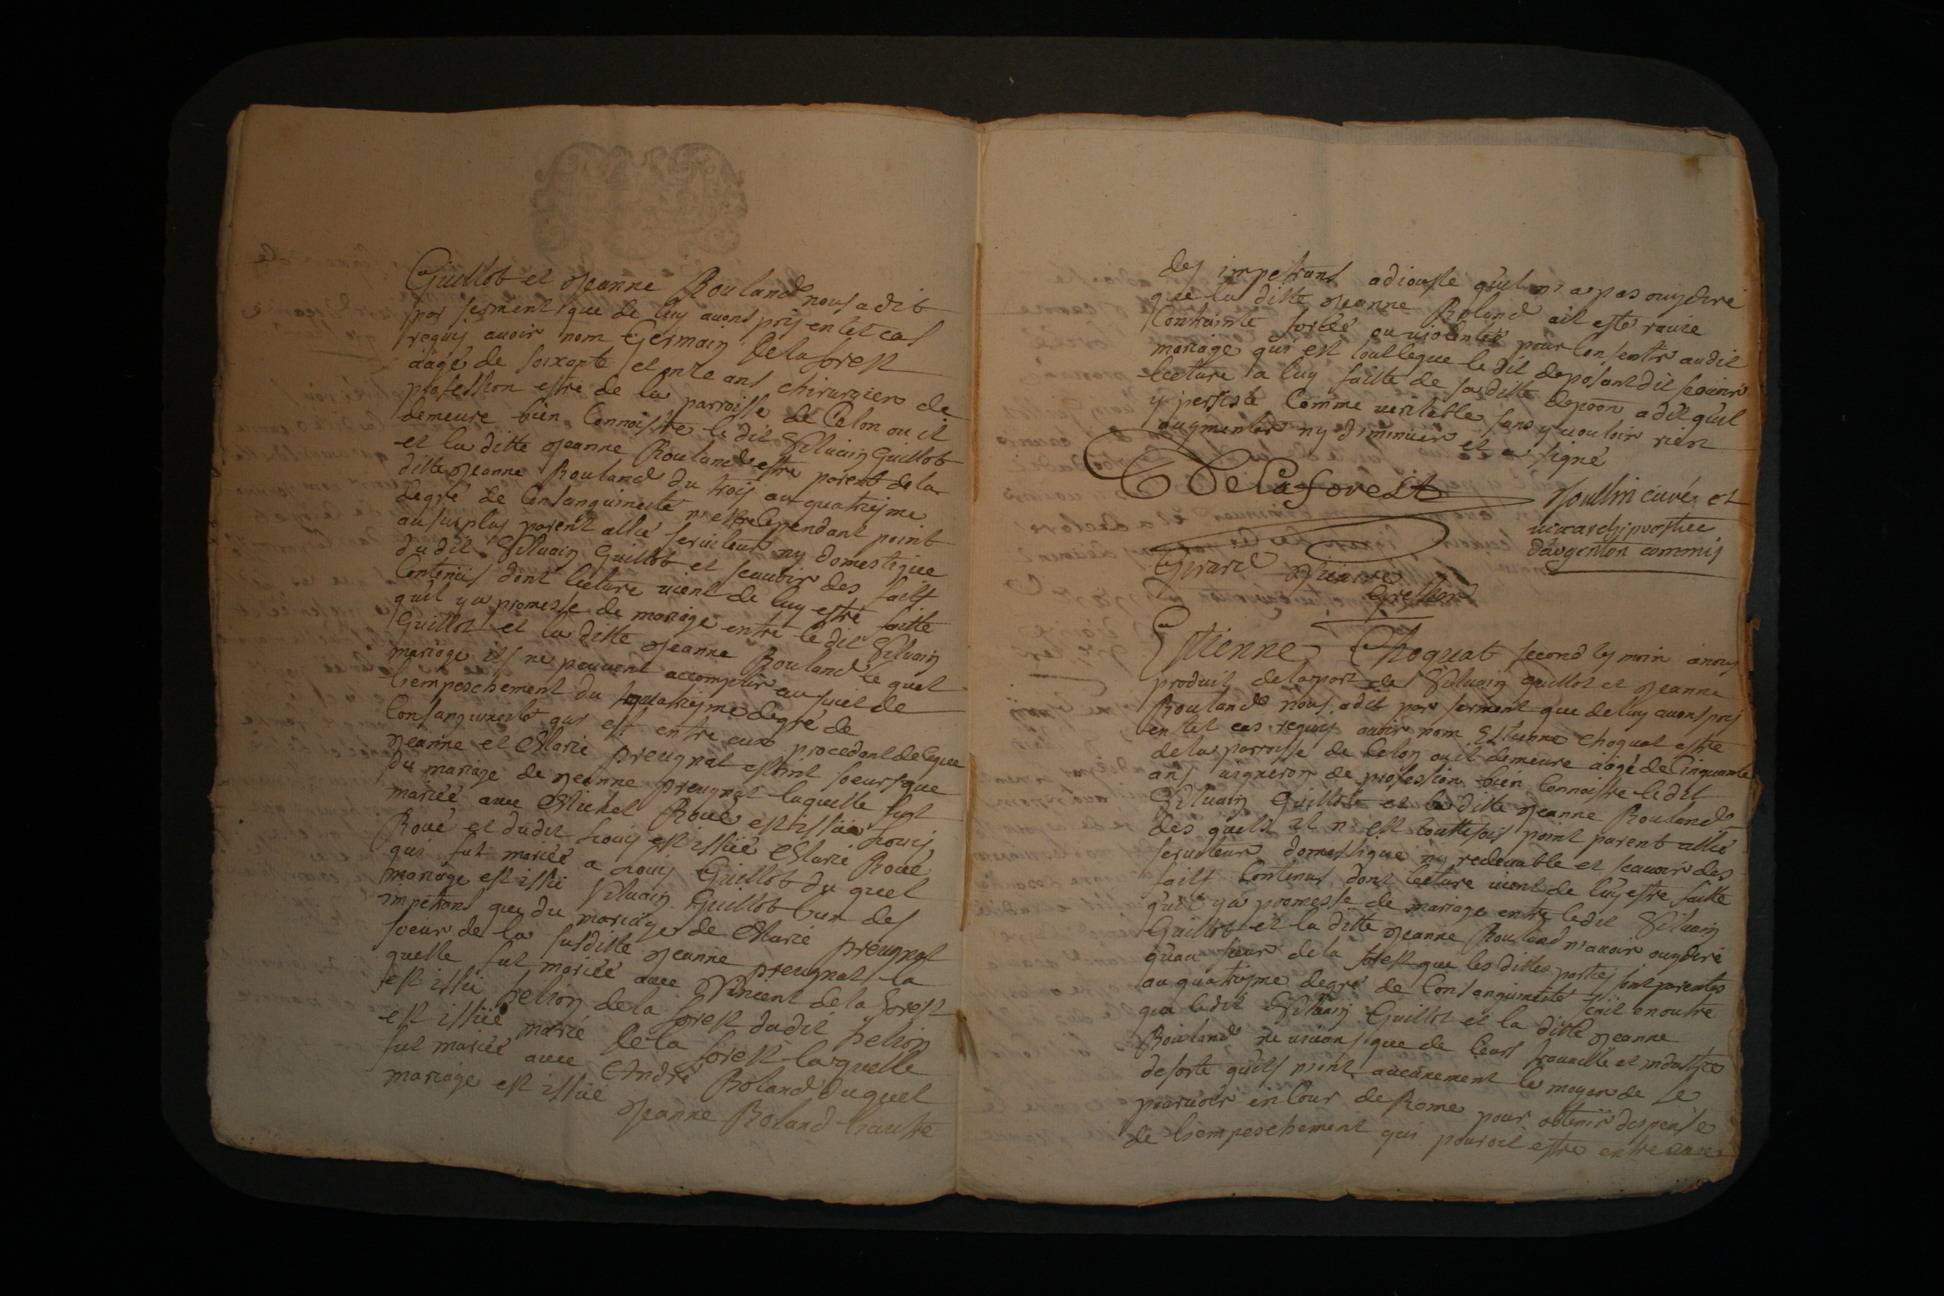 Guillot et Jeanne Rouland nous a dit
par serment que de luy avons pris en tel cas
requis avoir nom Germain Delaforest
aâgé de soixante et onze ans chirurgien de
profession estre de la parroisse de Celon ou il
demeure bien connoistre le dit Silvain Guillot
et la ditte Jeanne Rouland estre parent de la
ditte Jeanne Rouland du trois au quatriesme
degré de consanguinité n'estre cependant point
au surplus parent allié serviteur ny domestique
du dit Silvain Guillot et scavoir des faits
contenus dont lecture vient de luy estre faitte
quil y a promesse de mariage entre le dit Silvain
Guillot et la ditte Jeanne Rouland le quel
mariage ils ne peuvent accomplir au sujet de
l'empeschement du quatriesme degré de
consanguinité qui est entre eux procedant de ce que
Jeanne et Marie preugnat estoint soeurs que
du mariage de Jeanne preugnat laquelle fut
mariée avec Michel Roüé est issüe Louis
Roué et dudit Louis est issüe Marie Roüé
qui fut mariée a Louis Guillot du quel
mariage est issü Silvain Guillot l'un des
impetrans que du mariage de Marie preugnat
soeur de la susditte Jeanne preugnat la
quelle fut mariée avec Vincent de la forest
est issü helion de la forest dudit helion
est issüe marie de la forest laquelle
fut mariée avec André Roland duquel
mariage est issüe Jeanne Roland l'autre
des impetrans adiouste quil n'a pas ouy dire
que la ditte Jeanne Roland ait esté ravie
contrainte forcée ou violentée pour consentir audit
mariage qui est tout ce que le dit deposant dit scavoir
lecture a luy faitte de sa ditte depoon a dit quil
y persiste comme veritable sans y vouloir rien
augmenter ny diminuer et a signé
Delaforest
curé et
vicaire archiprestre
d'argenton commis
Girard
greffier
Estienne Choquat second tesmoin a nous
produit de la part de Silvain guillot et Jeanne
Rouland nous a dit par serment que de luy avons pris
en tel cas requis avoir nom Estienne Choquat estre
de la parroisse de Celon ou il demeure aagé de Cinquante
ans vigneron de profession bien connoistre le dit
Silvain Guillot et la ditte Jeanne Rouland
des quels il n'est touttefois point parent allié
serviteur domestique ny redevable et scavoir des
faits contenus dont lecture vient de luy estre faitte
quil y a promesse de mariage entre le dit Silvain
Guillot et la ditte Jeanne Rouland n'avoir ouy dire
qu'au sieur de la forest que les dittes parties sont parentes
au quatriesme degré de consanguinité scait en outre
que le dit Silvain Guillot et la ditte Jeanne
Rouland ne vivans que de leurs travaille et industrie
de sorte qu'ils n'ont aucunement le moyen de se
pourvoir en Cour de Rome pour obtenir dispense
de l'empeschement qui pouroit estre entre eux